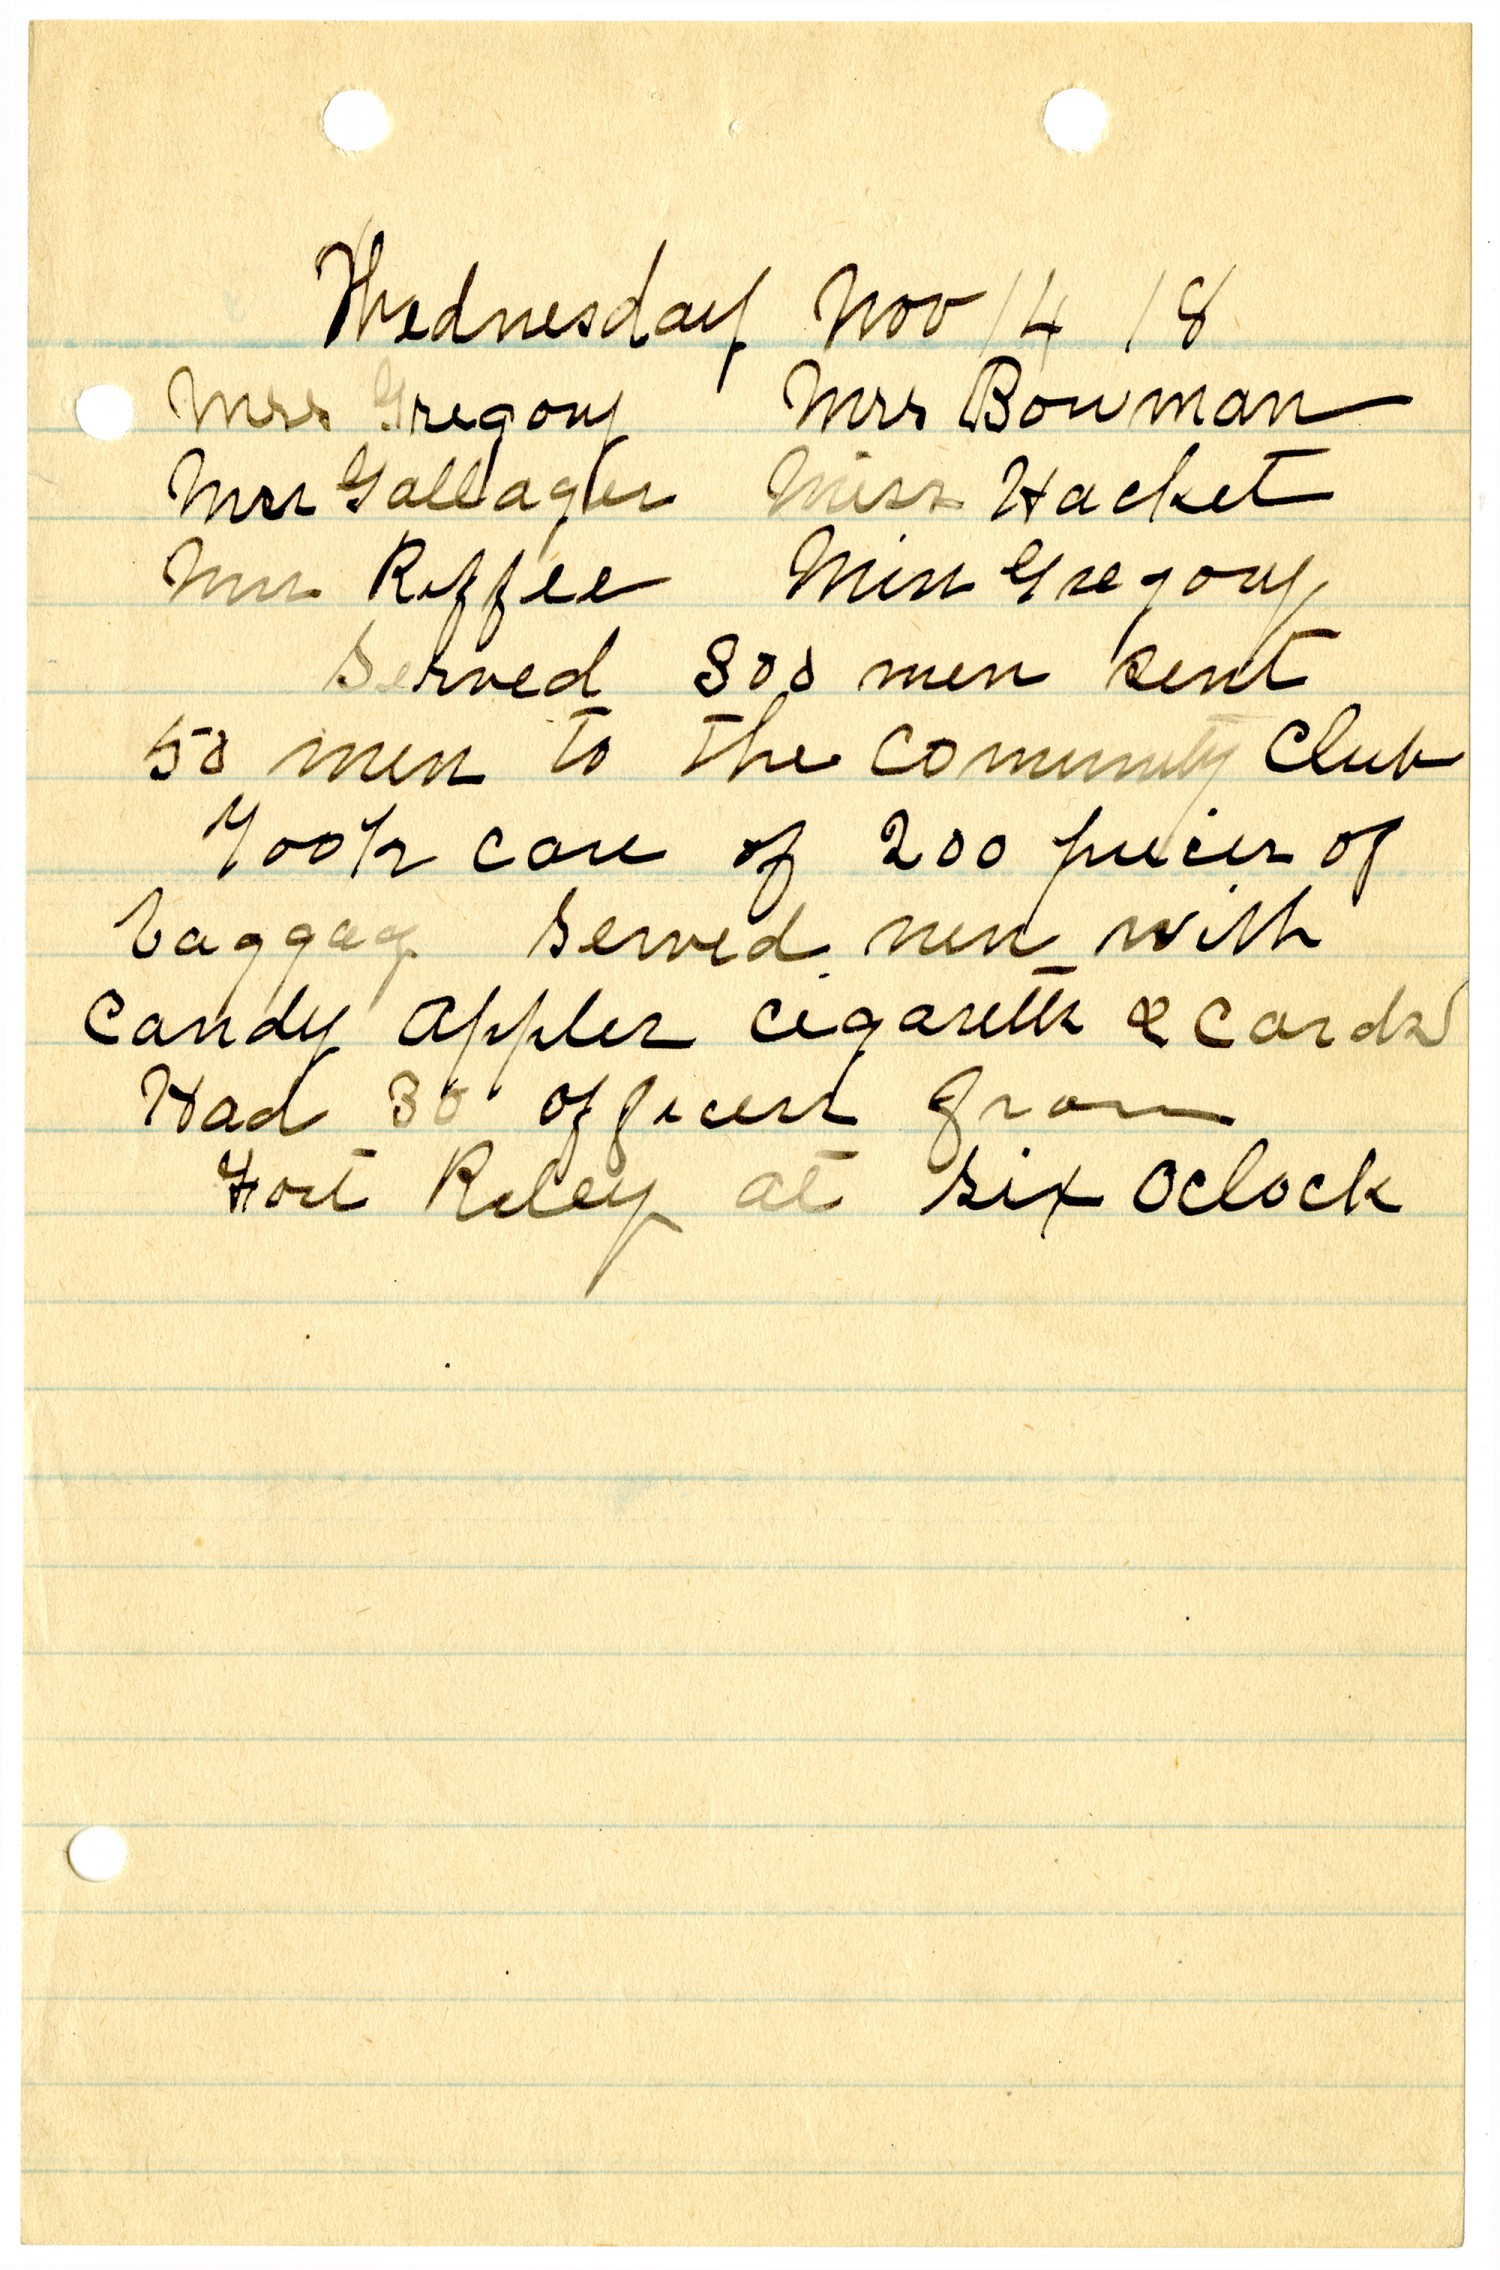 Wednesday Nov 14 18
Mrs Gregory Mrs Bowman
Mrs Gallagher Miss Hacket
Mrs Riffee Miss Gregory
Served 300 men sent
50 men to the Comunity Club
Took care of 200 pieces of
baggag Served men with
Candy apples cigaretts & Cards
Had 30 officers from
Fort Riley at six Oclock